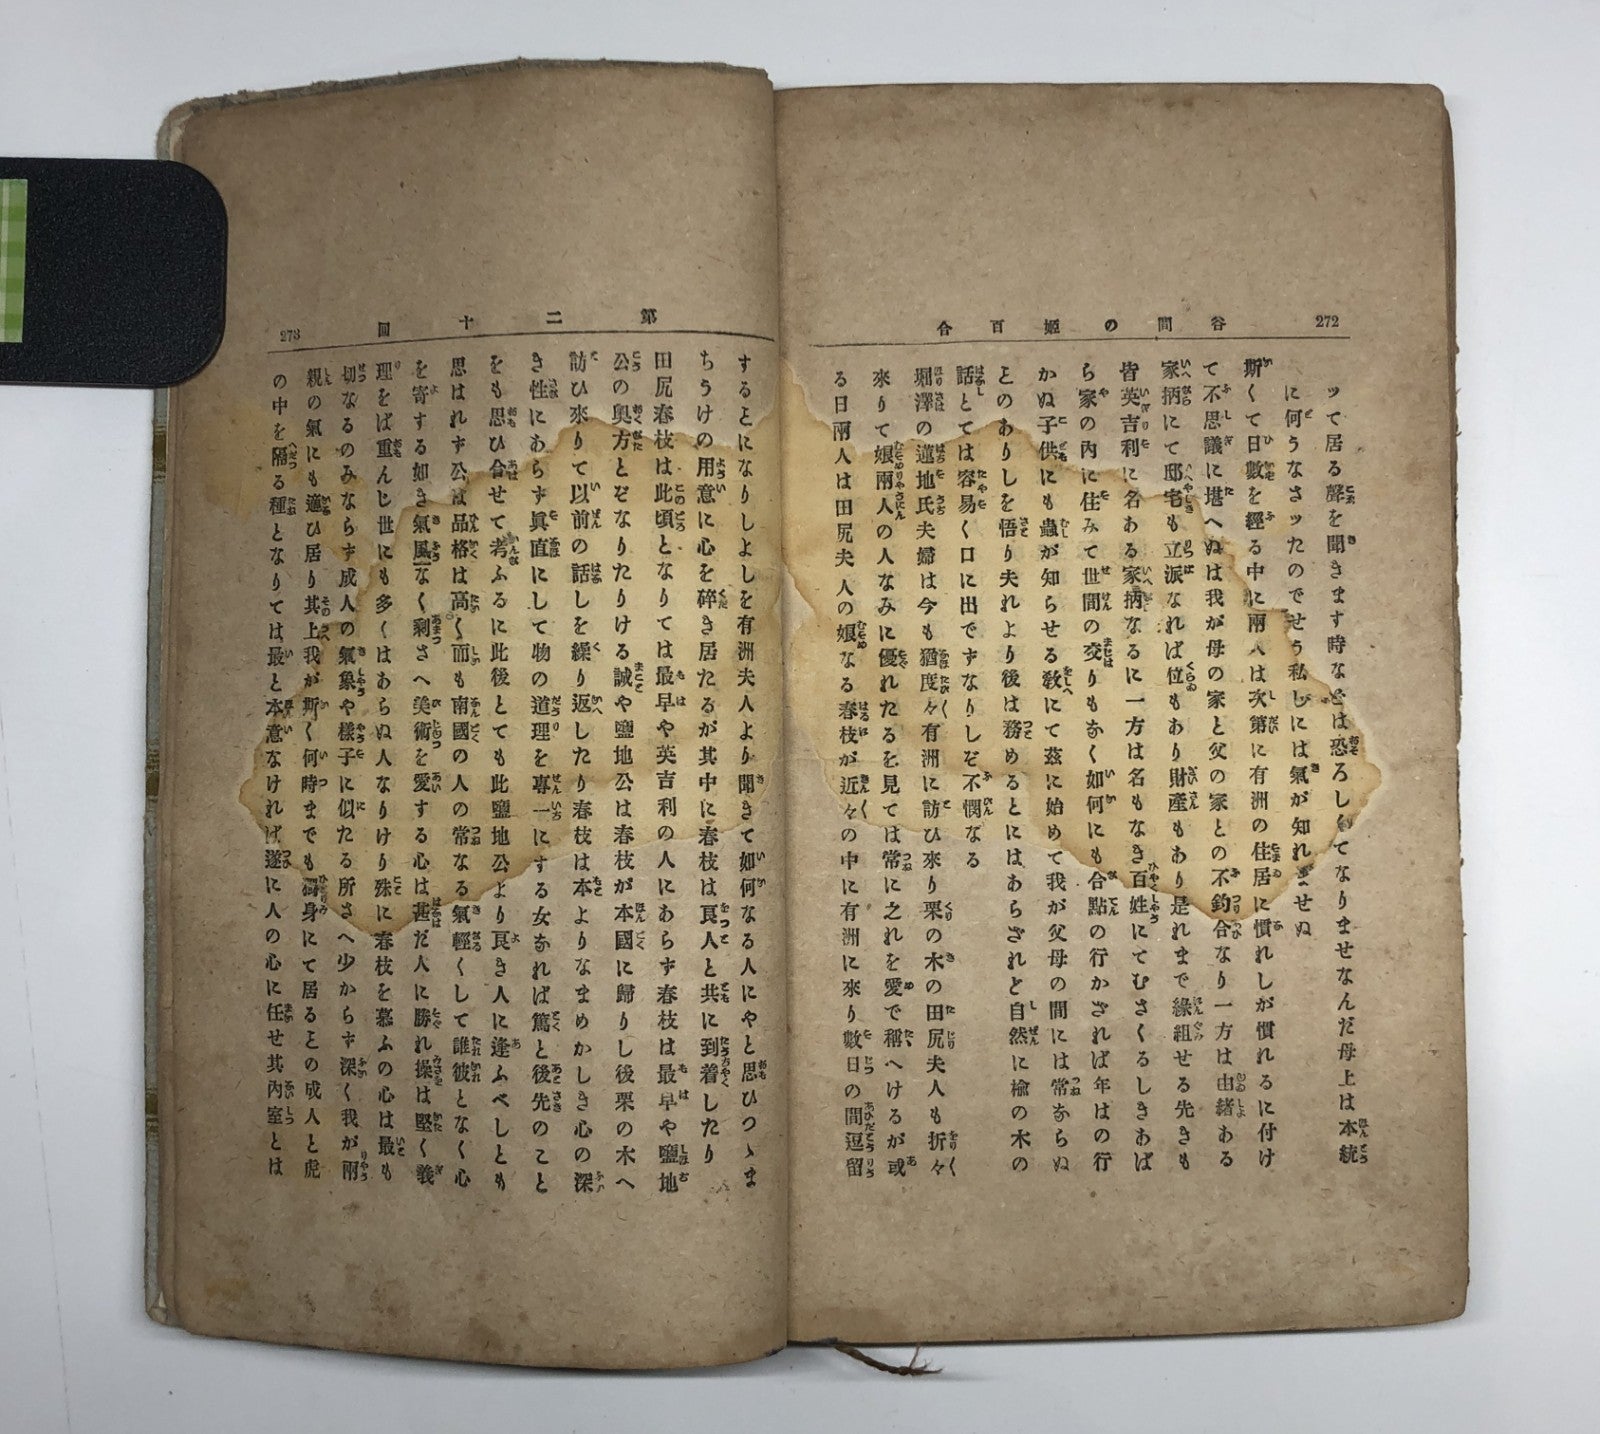 272
谷間の姫百合
ッて居る聲を聞きます時などは恐ろしくてなりませなんだ母上は本統
に何うなさッたのでせう私しには氣が知れませぬ
斯くて日數を經る中に兩人は次第に有洲の住居に慣れしが慣れるに付け
て不思議に堪へぬは我が母の家と父の家との不釣合なり一方は由緒ある
家柄にて邸宅も立派なれば位もあり財產もあり是れまで綠組せる先きも
皆英吉利に名ある家柄なるに一方は名もなき百姓にてむさくるしきあば
ら家の內に住みて世間の交りもなく如何にも合點の行かざれば年はの行
かぬ子供にも蟲が知らせる敎にて茲に始めて我が父母の間には常ならぬ
ことのありしを悟り夫れより後は務めるとにはあらざれど自然に楡の木の
話とては容易く口に出でずなりしぞ不憫なる
堀澤の蓮地氏夫婦は今も猶度々有洲に訪ひ來り栗の木の田尻夫人も折々
來りて娘兩人の人なみに優れたるを見ては常に之れを愛で稱へけるが或
る日兩人は田尻夫人の娘なる春枝が近々の中に有洲に來り數日の間逗留
第二十回
273
するとになりしよしを有洲夫人より聞きて如何なる人にやと思ひつゝま
ちうけの用意に心を碎き居たるが其中に春枝は良人と共に到着したり
田尻春枝は此頃となりては最早や英吉利の人にあらず春枝は最早や鹽地
公の奧方とぞなりたりける誠や鹽地公は春枝が本國に歸りし後栗の木へ
訪ひ來りて以前の話しを繰り返したり春枝は本よりなまめかしき心の深
き性にあらず眞直にして物の道理を專一にする女なれば篤と後先のこと
をも思ひ合せて考ふるに此後とても此鹽地公より良き人に逢ふべしとも
思はれず公は品格は高く而も南國の人の常なる氣輕くして誰彼となく心
を寄する如き氣風なく剩さへ美術を愛する心は甚だ人に勝れ操は堅く義
理をば重んじ世にも多くはあらぬ人なりけり殊に春枝を慕ふの心は最も
切なるのみならず成人の氣象や樣子に似たる所さへ少からず深く我が兩
親の氣にも適ひ居り其上我が斯く何時までも獨身にて居ることの成人と虎
の中を隔る種となりては最と本意なければ遂に人の心に任せ其內室とは